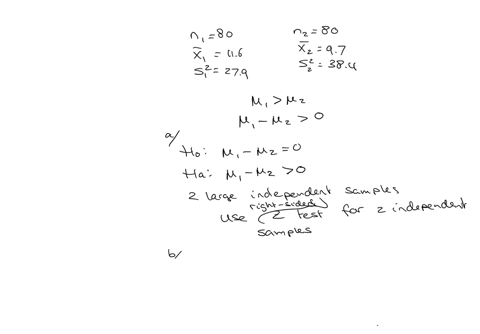 n₁=80 n₂=80
x̄₁ = 11.6 x̄₂ = 9.7
S₁² = 27.9 S₂² = 38.4
μ₁ > μ₂
μ₁ - μ₂ > 0
a/
H₀: μ₁ - μ₂ = 0
Ha: μ₁ - μ₂ > 0
2 large independent samples
right-sided
use z test for 2 independent
samples
b/